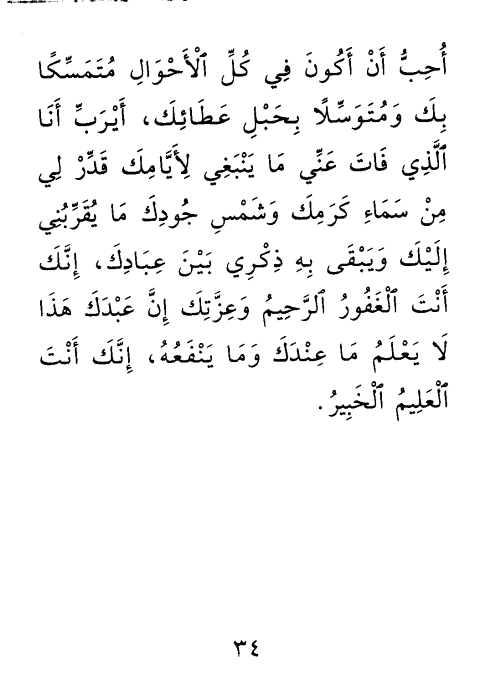 أُحِبُّ أَنْ أَكُونَ فِي كُلِّ ٱلْأَحْوَالِ مُتَمَسِّكًا
بِكَ وَمُتَوَسِّلًا بِحَبْلِ عَطَائِكَ، أَيْرَبِّ أَنَا
ٱلَّذِي فَاتَ عَنِّي مَا يَنْبَغِي لِأَيَّامِكَ قَدِّرْ لِي
مِنْ سَمَاءِ كَرَمِكَ وَشَمْسِ جُودِكَ مَا يُقَرِّبُنِي
إِلَيْكَ وَيَبْقَى بِهِ ذِكْرِي بَيْنَ عِبَادِكَ، إِنَّكَ
أَنْتَ ٱلْغَفُورُ ٱلرَّحِيمُ وَعِزَّتِكَ إِنَّ عَبْدَكَ هَذَا
لَا يَعْلَمُ مَا عِنْدَكَ وَمَا يَنْفَعُهُ، إِنَّكَ أَنْتَ
ٱلْعَلِيمُ ٱلْخَبِيرُ.
٣٤